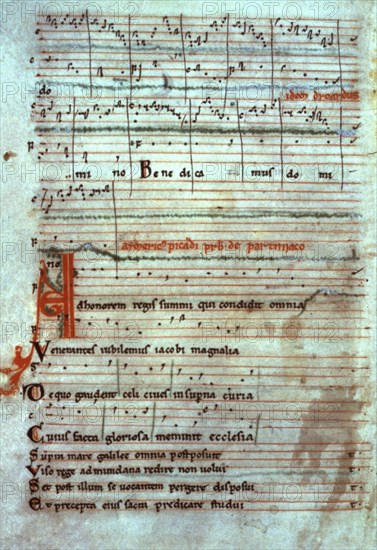 do
mi no Benedica mus do mi
no
Ad honorem regis summi qui condidit omnia
Venerantes iubilemus iacobi magnalia
De quo gaudent celi ciues in supna curia
Cuius facta gloriosa meminit ecclesia
Sup mare galilee omnia postposuit
Viso rege ad mundana redire non uoluit
Set post illum se uocantem pergere disposuit
Et precepta eius sacra predicare studuit